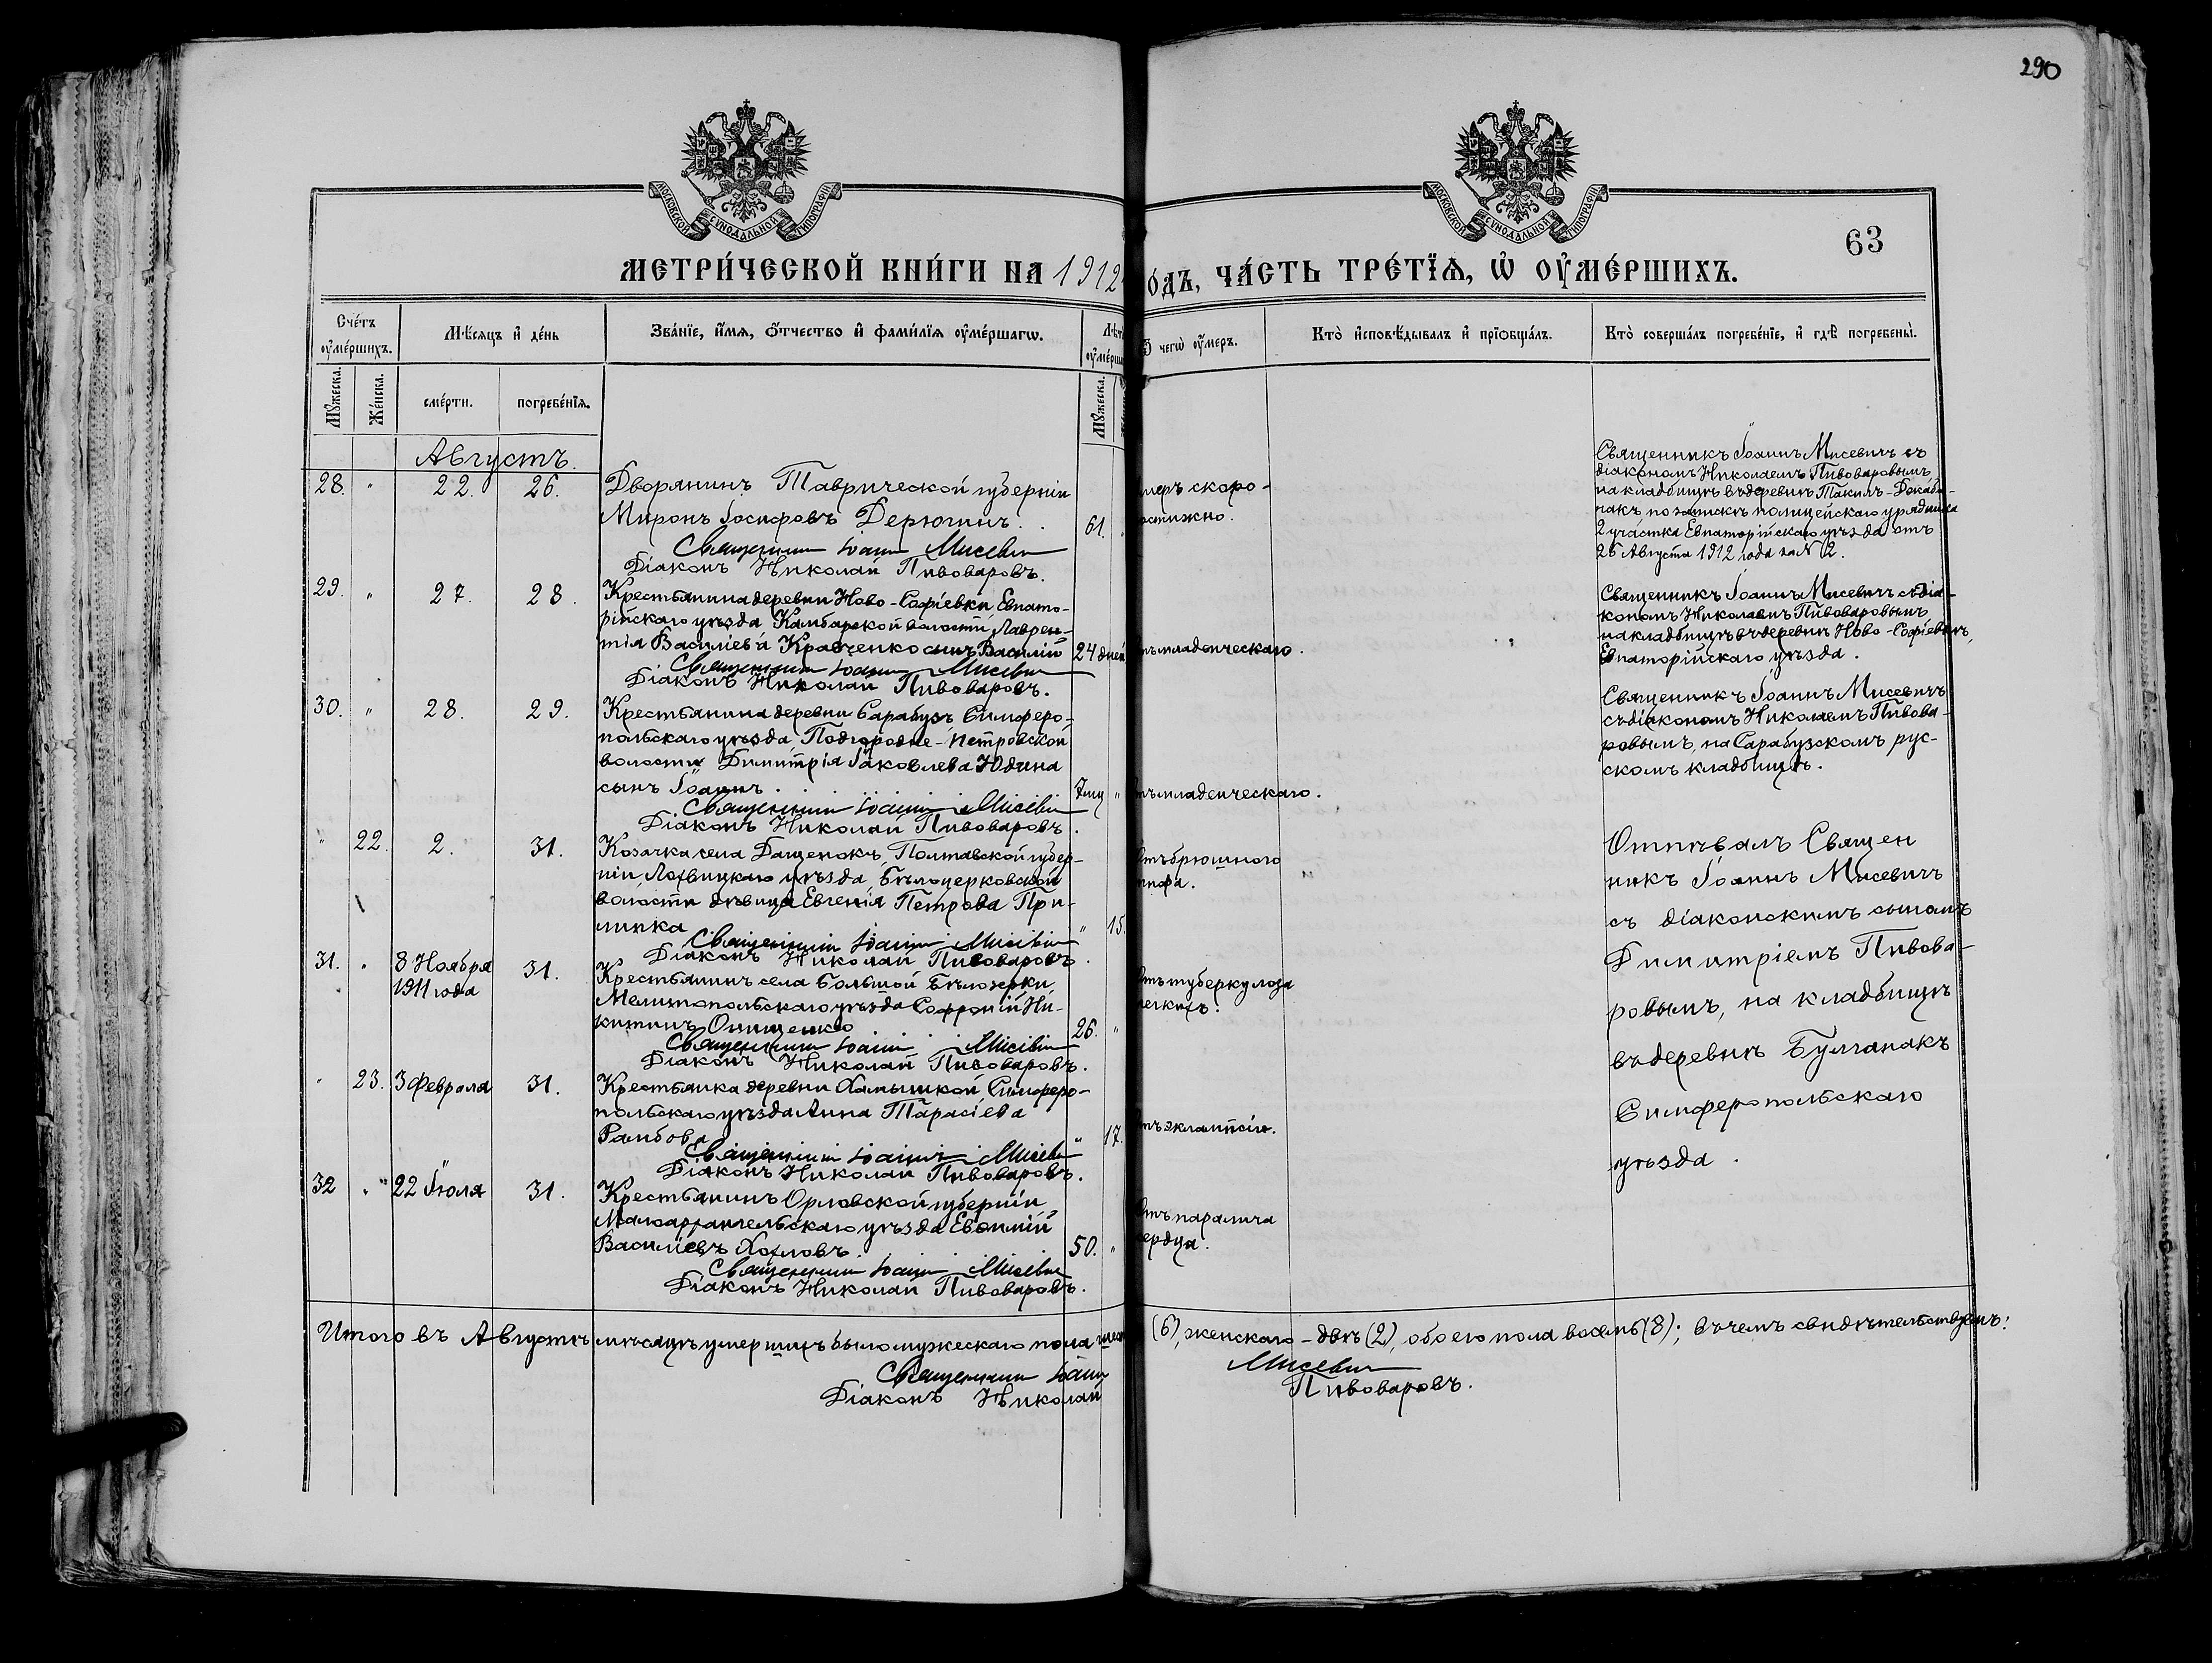 290
63
МОСКОВСКОЙ СѴНОДАЛЬНОЙ ТИПОГРАФІИ
МОСКОВСКОЙ СѴНОДАЛЬНОЙ ТИПОГРАФІИ
МЕТРИ́ЧЕСКОЙ КНИ́ГИ НА 1912 О́ДЪ, ЧА́СТЬ ТРЕ́ТЇѦ, Ѡ ОУМЕ́РШИХЪ.
Сче́тъ оуме́ршихъ.
Мѣ́сяцъ и де́нь
Зва́нїе, и́мѧ, ѻ́тчество и фами́лїѧ оуме́ршагѡ.
Лѣт
оуме́рша
чегѡ̀ оу́меръ.
Кто̀ исповѣ́дывалъ и прїѡбща́лъ.
Кто̀ соверша́лъ погребе́нїе, и гдѣ̀ погребены̀.
Мꙋ́жеска.
Же́нска.
сме́рти.
погребе́нїѧ.
Мꙋ́жеска.
Августъ.
28. " 22. 26.
Дворянинъ Таврической губерніи
Миронъ Іосифовъ Дерюгинъ. 61.
Священникъ Іоаннъ Мисевич
Діаконъ Николай Пивоваровъ.
меръ скоро-
остижно.
Священникъ Іоаннъ Мисевичъ съ
діакономъ Николаемъ Пивоваровымъ
на кладбищѣ въ деревнѣ
по запискѣ полицейскаго урядника
2 участка Евпаторійскаго уѣзда отъ
26 Августа 1912 года за N 2.
29. " 27. 28.
Крестьянина деревни Ново-Софіевки Евпато-
рійскаго уѣзда Камбарской волости, Лаврен-
тія Василіева Кравченко сынъ Василій 24 дней
Священникъ Іоаннъ Мисевич
Діаконъ Николай Пивоваровъ.
младенческаго.
Священникъ Іоаннъ Мисевичъ съ діа-
кономъ Николаемъ Пивоваровымъ
на кладбищѣ въ деревнѣ Ново-Софіевкѣ,
Евпаторійскаго уѣзда.
30. " 28. 29.
Крестьянина деревни Сарабузъ Симферо-
польскаго уѣзда, Подгородне-Петровской
волости Димитрія Іаковлева Юдина
сынъ Іоаннъ. 7 мц "
Священникъ Іоаннъ Мисевич
Діаконъ Николай Пивоваровъ.
тъ младенческаго.
Священникъ Іоаннъ Мисевичъ
съ діакономъ Николаемъ Пивова-
ровымъ, на Сарабузскомъ рус-
скомъ кладбищѣ.
" 22. 2. 31.
Козачка села Дащенокъ, Полтавской губер-
ніи, Лохвицкаго уѣзда, Бѣлоцерковской
волости дѣвица Евгенія Петрова При-
липка " 15.
Священникъ Іоаннъ Мисевич
Діаконъ Николай Пивоваровъ.
Отъ брюшного
тифа.
Отпѣвалъ Священ
никъ Іоаннъ Мисевичъ
съ діаконскимъ сыномъ
Димитріемъ Пивова-
ровымъ, на кладбищѣ
въ деревнѣ Булганакъ
Симферопольскаго
уѣзда.
31. " 8 Ноября 31.
1911 года
Крестьянинъ села Большой Бѣлозерки,
Мелитопольскаго уѣзда Софроній Ни-
китинъ Онищенко 26. "
Священникъ Іоаннъ Мисевич
Діаконъ Николай Пивоваровъ.
Отъ туберкулоза
легкихъ.
" 23. 3 Февраля 31.
Крестьянка деревни Симферо-
польскаго уѣзда Анна Тарасіева
Рамбова " 17.
Священникъ Іоаннъ Мисевич
Діаконъ Николай Пивоваровъ.
тъ эклампсіи.
32 " 22 Іюля 31.
Крестьянинъ Орловской губерніи
Малоархангельскаго уѣзда Евѳимій
Василіевъ Хохловъ. 50. "
Священникъ Іоаннъ Мисевич
Діаконъ Николай Пивоваровъ.
Отъ паралича
сердца.
Итого въ Августѣ мѣсяцѣ умершихъ было мужескаго пола шест (6), женскаго - двѣ (2), обоего пола восемь (8); въ чемъ свидѣтельствуемъ:
Священникъ Іоаннъ Мисевич
Діаконъ Николай Пивоваровъ.